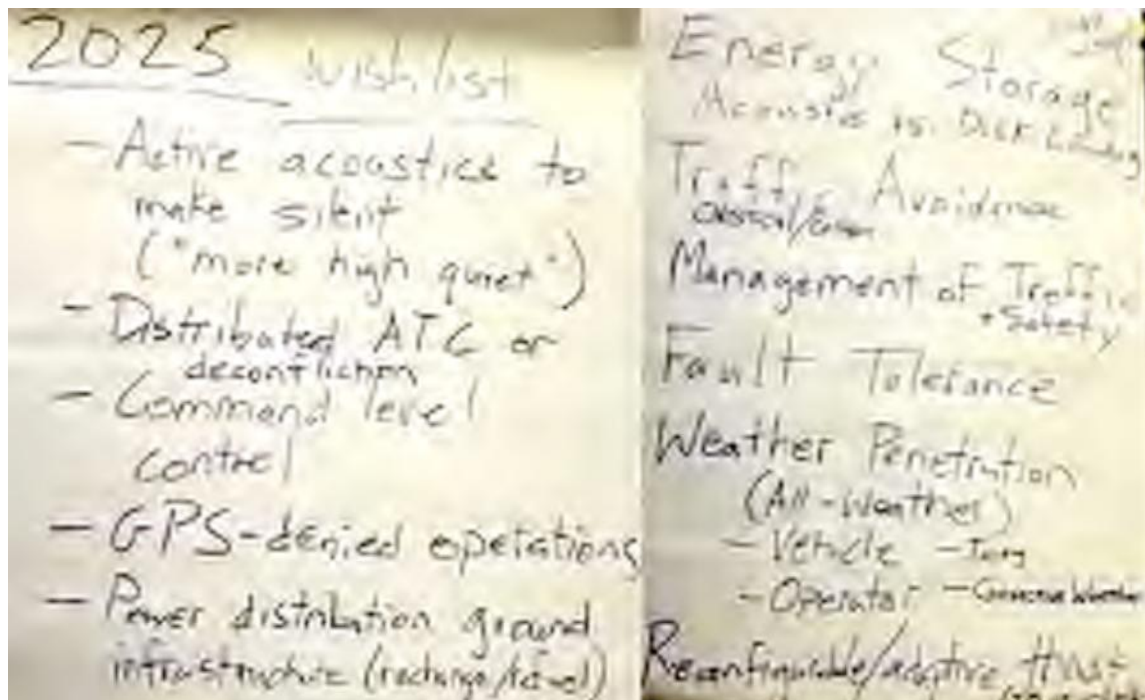 2025 wish list
- Active acoustics to
make silent
("more high quiet")
- Distributed ATC or
deconfliction
- Command level
control
- GPS-denied operations
- Power distribution ground
infrastructure (recharge/
Energy Storage
Acoustics vs. Disk Loading
Traffic Avoidance
Management of Traffic
+ Safety
Fault Tolerance
Weather Penetration
(All-Weather)
- Vehicle - Icing
- Operator - Weather
Reconfigurable/adaptive thrust